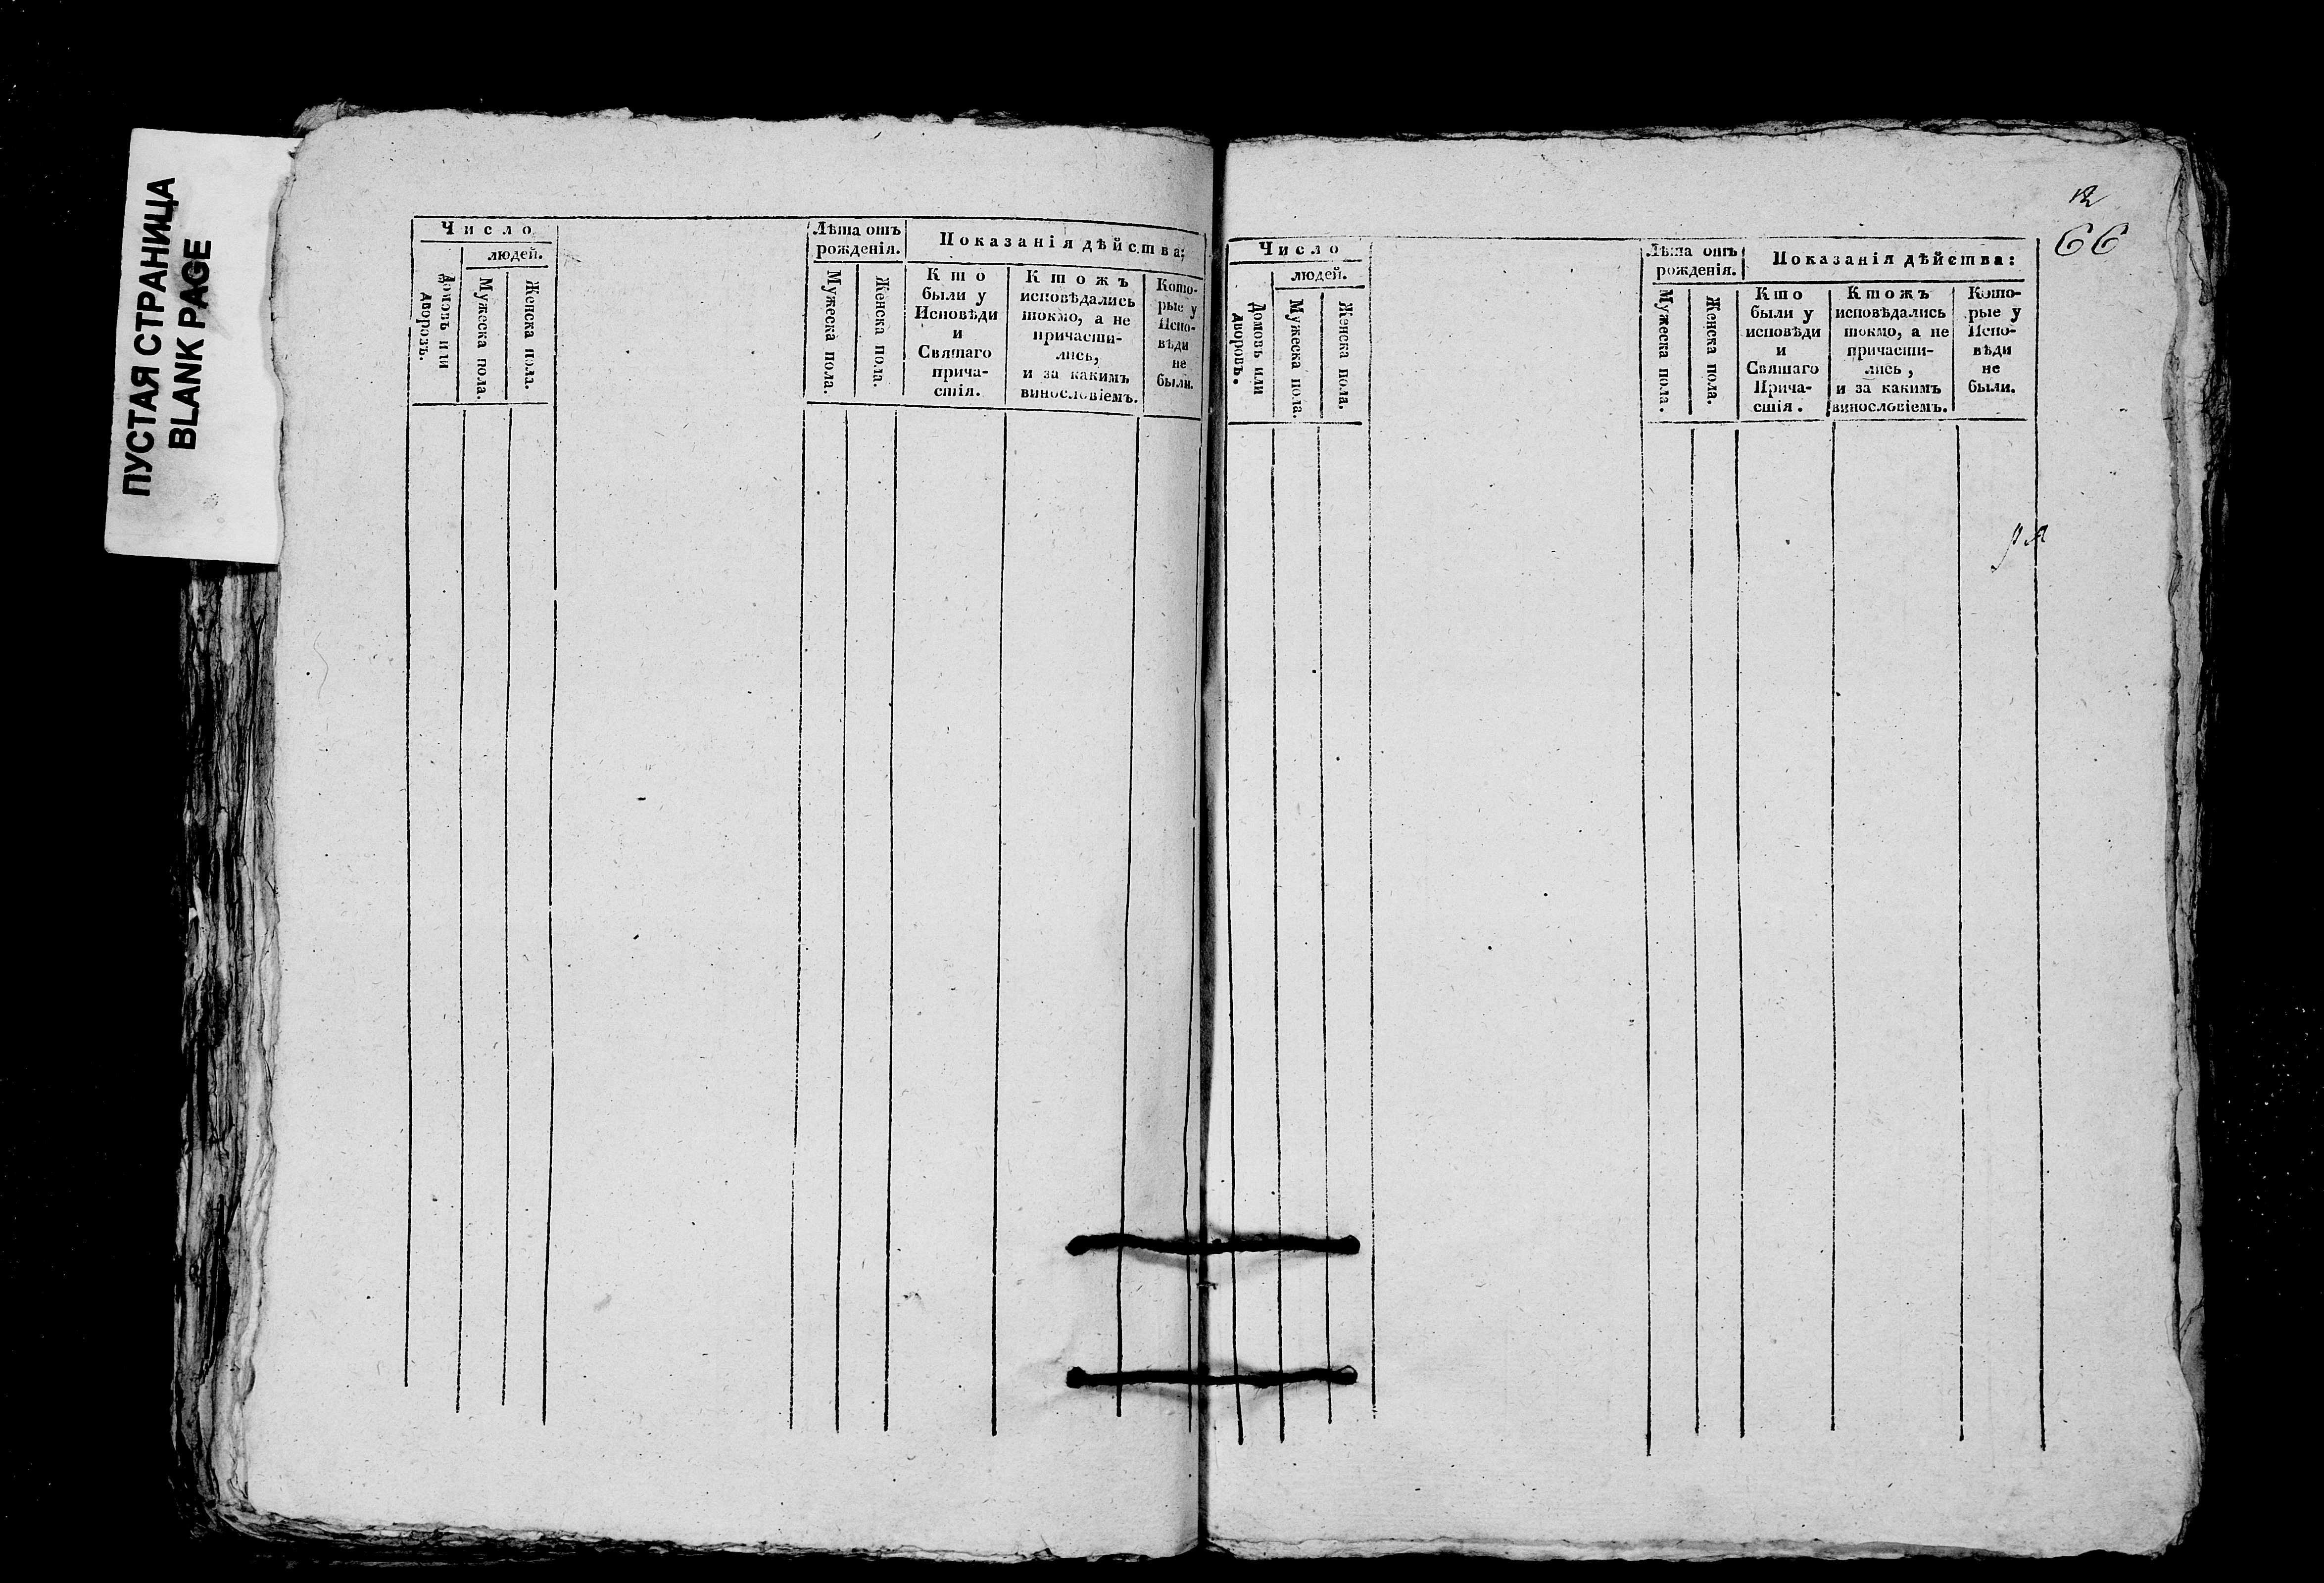 ПУСТАЯ СТРАНИЦА
BLANK PAGE
Число
людей.
Домовъ или
дворовъ.
Мужеска пола.
Женска пола.
Лѣта отъ
рожденія.
Мужеска пола.
Женска пола.
Показанія дѣйства:
Кто
были у
Исповѣди
и
Святаго
прича-
стія.
Ктожъ
исповѣдались
токмо, а не
причасти-
лись,
и за какимъ
винословіемъ.
Кото-
рые у
Испо-
вѣди
не
были.
66
Число
людей.
Домовъ или
дворовъ.
Мужеска пола.
Женска пола.
Лѣта отъ
рожденія.
Мужеска пола.
Женска пола.
Показанія дѣйства:
Кто
были у
исповѣди
и
Святаго
Прича-
стія.
Ктожъ
исповѣдались
токмо, а не
причасти-
лись,
и за какимъ
винословіемъ.
Кото-
рые у
Испо-
вѣди
не
были.